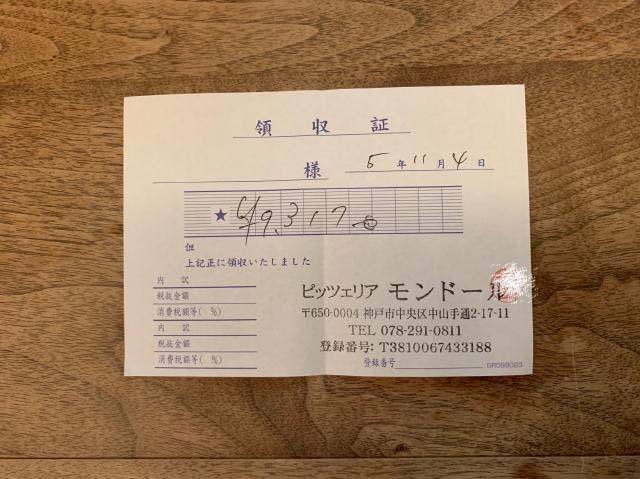 領収証
様 5年11月4日
★ ¥9,317-
但
上記正に領収いたしました
内訳
税抜金額
消費税額等( %)
内訳
税抜金額
消費税額等( %)
ピッツェリア モンドール
〒650-0004 神戸市中央区中山手通2-17-11
TEL 078-291-0811
登録番号: T3810067433188
登録番号
GR099023